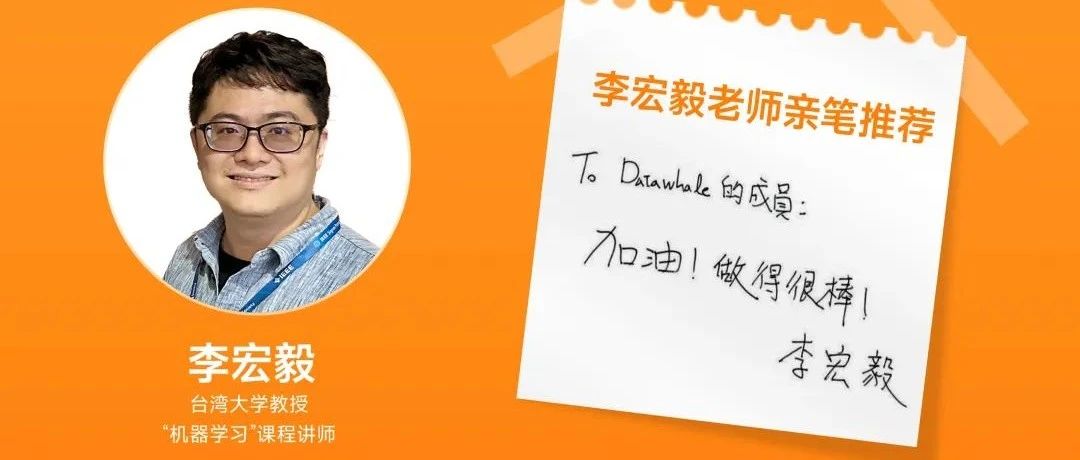 李宏毅
台湾大学教授
“机器学习”课程讲师
李宏毅老师亲笔推荐
To Datawhale 的成員:
加油!做得很棒!
李宏毅
IEEE